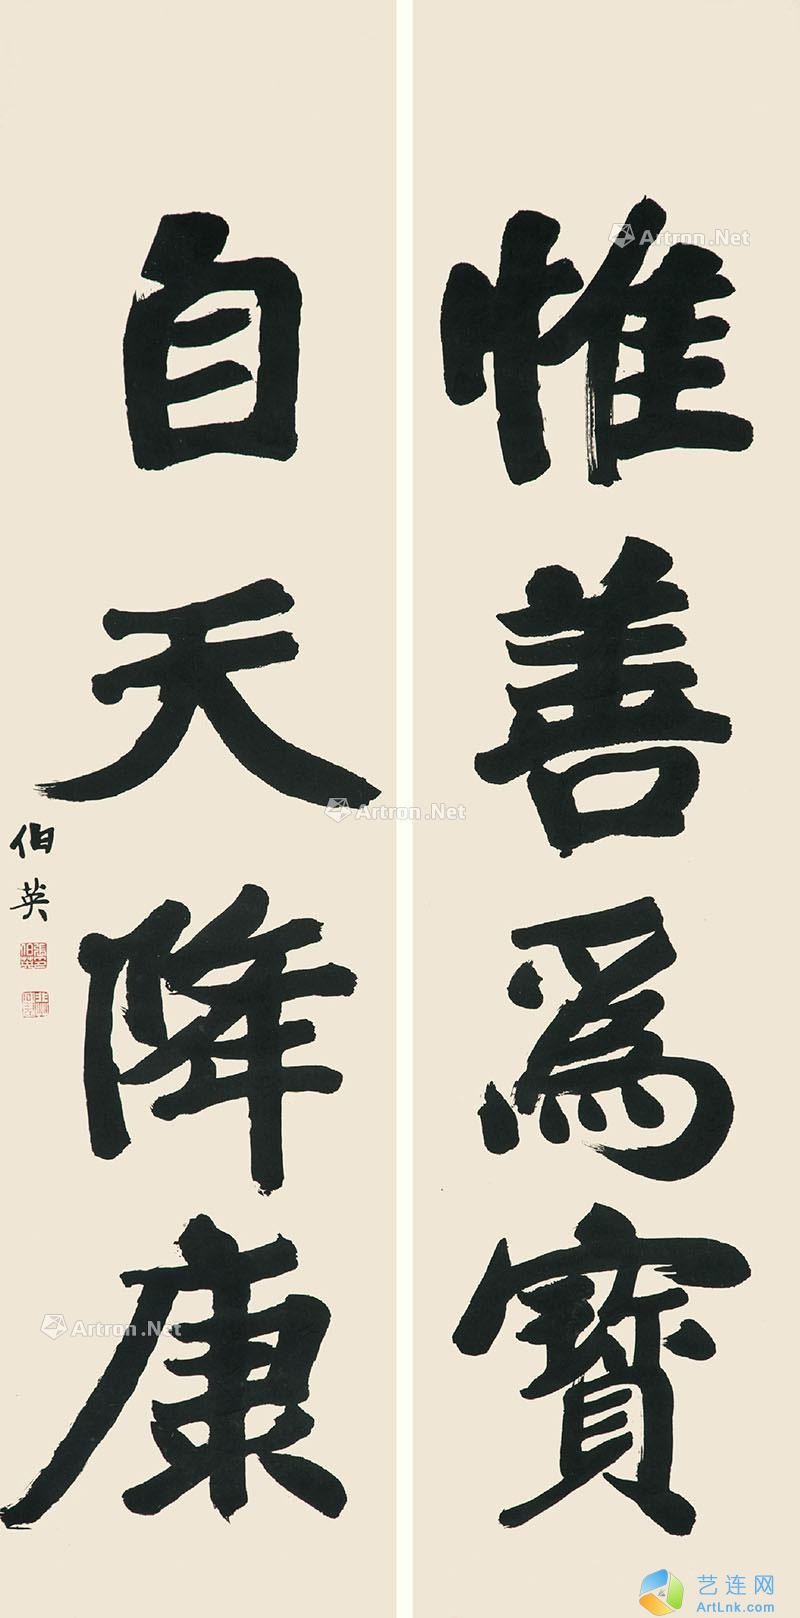 惟善為寶
自天降康
伯英
張伯英
Artron.Net
Artron.Net
Artron.Net
艺连网
ArtLnk.com